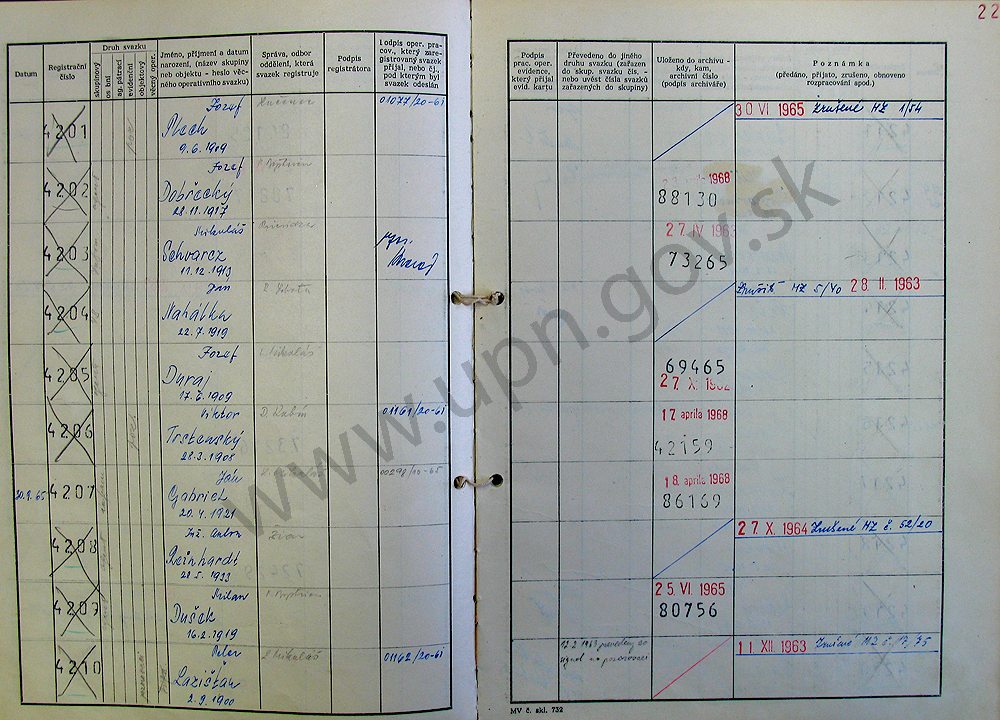 22
Datum
Registrační
číslo
Druh svazku
skupinový
os bní
ag. pátrací
evidenční
objektový
věcný oper.
Jméno, příjmení a datum
narození, (název skupiny
neb objektu - heslo věc-
ného operativního svazku)
Správa, odbor
oddělení, která
svazek registruje
Podpis
registrátora
odpis oper. pra-
cov., který zare-
gistrovaný svazek
přijal, nebo čj.,
pod kterým byl
svazek odeslán
Podpis
prac. oper.
evidence,
který přijal
evid. kartu
Převedeno do jiného
druhu svazku (zařazen
do skup. svazku čís. -
nebo uvést čísla svazků
zařazených do skupiny)
Uloženo do archivu -
kdy, kam,
archivní číslo
(podpis archiváře)
Poznámka
(předáno, přijato, zrušeno, obnoveno
rozpracování apod.)
Jozef
01077/20-61
30 VI 1965 Zrušené MZ 1/54
4201
Plech
9.6.1909
Jozef
1968
4202
Dobřecký
88130
28.11.1917
Mikuláš
27 IV 1963
4203
Schvarcz
73265
11.12.1913
Ján
MZ 5/40 28 II. 1963
4204
Nahálka
22.7.1919
Jozef
L. Mikuláš
69465
4205
Duraj
27 XI 1962
17.6.1909
Viktor
D. Kubín
01161/20-61
17 apríla 1968
4206
Trstenský
42159
28.3.1908
Ján
00298/10-65
18 apríla 1968
30.9.65
4207
Gabriel
86169
20.4.1921
Ing. Anton
Zvon
27. X. 1964 Zrušené MZ č. 52/20
4208
Reinhardt
28.5.1933
Milan
25 VI 1965
4209
Dušek
80756
16.2.1919
Peter
L. Mikuláš
01162/20-61
11 XII. 1963 Zrušené MZ č. 17/75
4210
Lazišťan
2.9.1900
MV č. skl. 732
www.upn.gov.sk